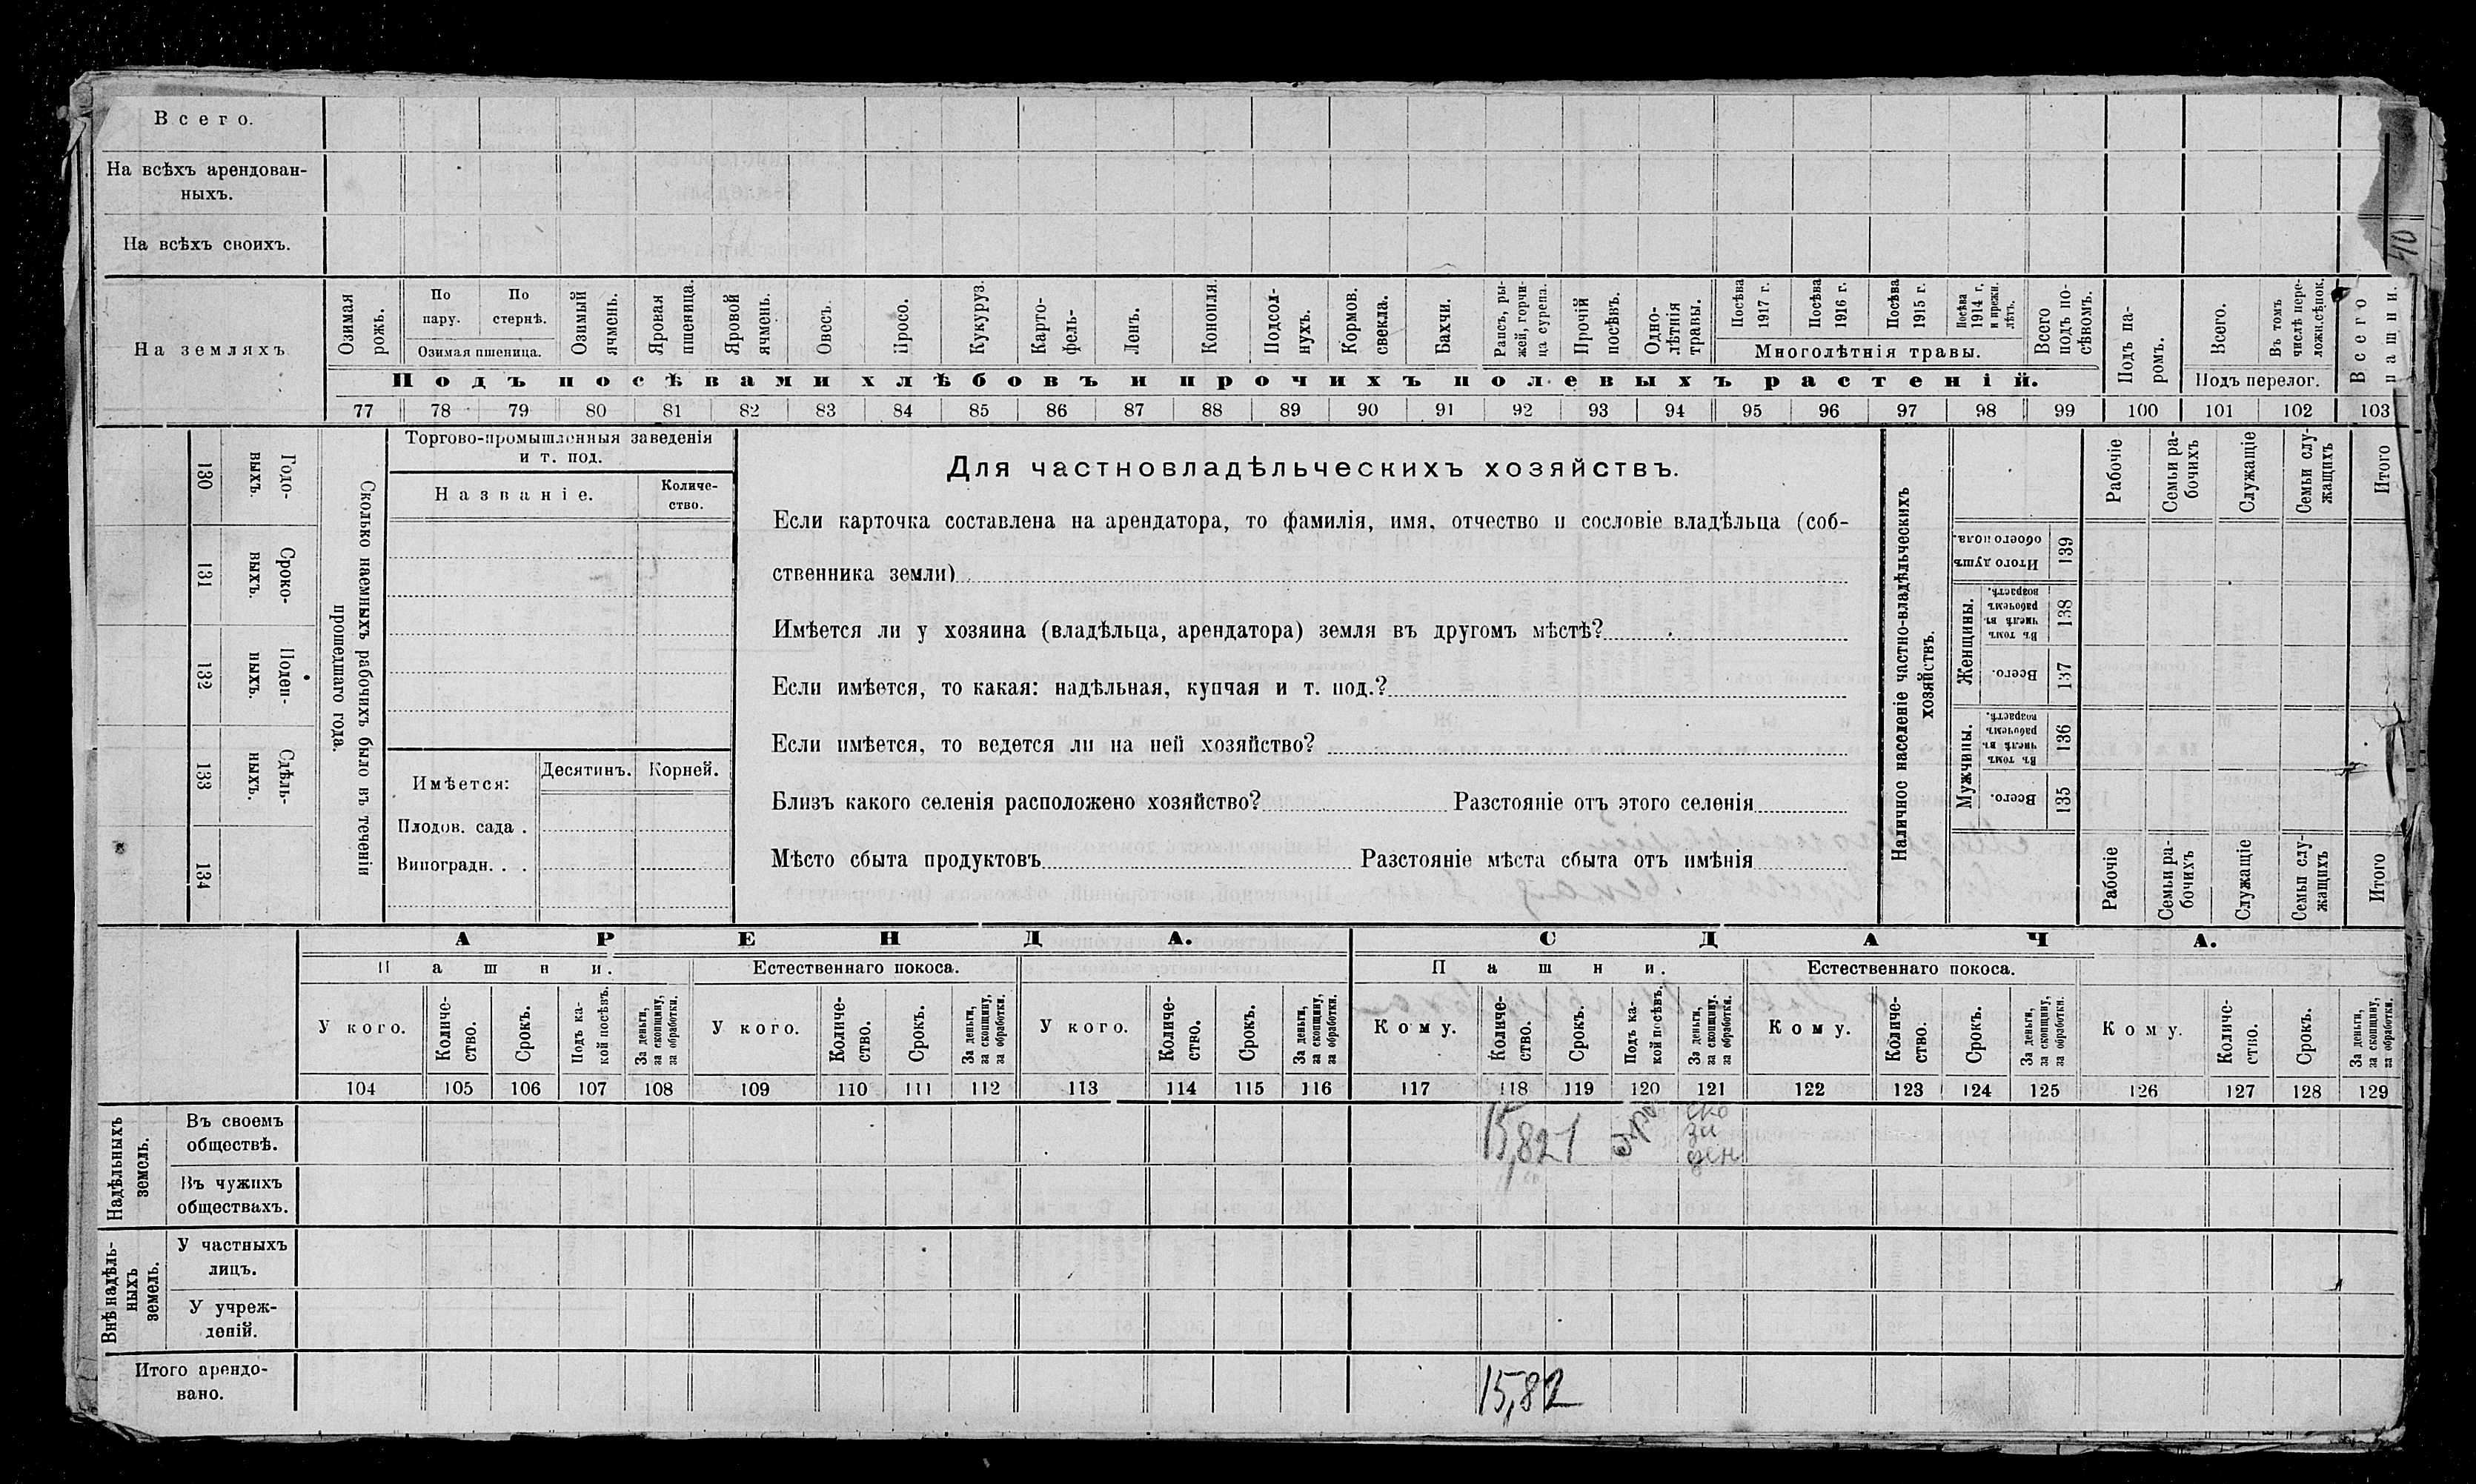 Всего.
На всѣхъ арендован-
ныхъ.
На всѣхъ своихъ.
40
На земляхъ
Озимая рожь.
По пару.
По стернѣ.
Озимая пшеница.
Озимый ячмень.
Яровая пшеница.
Яровой ячмень.
Овесъ.
Просо.
Кукуруз.
Карто-
фель-
Ленъ.
Конопля.
Подсол-
нухъ.
Кормов. свекла.
Бахчи.
Рапсъ, ры-
жей, горчи-
ца сурепа.
Прочій посѣвъ.
Одно-
лѣтнія травы.
Посѣва 1917 г.
Посѣва 1916 г.
Посѣва 1915 г.
Посѣва 1914 г. и прежн. лѣтъ.
Многолѣтнія травы.
Всего подъ по-
сѣвомъ.
Подъ па-
ромъ.
Всего.
Въ томъ числѣ пере-
ложн.сѣнок.
Подъ перелог.
Всего пашни.
Подъ посѣвами хлѣбовъ и прочихъ полевыхъ растеній.
77 78 79 80 81 82 83 84 85 86 87 88 89 90 91 92 93 94 95 96 97 98 99 100 101 102 103
130
Годо-
выхъ.
131
Сроко-
выхъ.
132
Поден-
ныхъ.
133
Сдѣль-
ныхъ.
134
Сколько наемныхъ рабочихъ было въ теченіи
прошедшаго года.
Торгово-промышленныя заведенія
и т. под.
Названіе.
Количе-
ство.
Имѣется:
Десятинъ.
Корней.
Плодов. сада .
Виноградн. . .
Для частновладѣльческихъ хозяйствъ.
Если карточка составлена на арендатора, то фамилія, имя, отчество и сословіе владѣльца (соб-
ственника земли)
Имѣется ли у хозяина (владѣльца, арендатора) земля въ другомъ мѣстѣ?
Если имѣется, то какая: надѣльная, купчая и т. под.?
Если имѣется, то ведется ли на ней хозяйство?
Близъ какого селенія расположено хозяйство? Разстояніе отъ этого селенія
Мѣсто сбыта продуктовъ Разстояніе мѣста сбыта отъ имѣнія
Наличное населеніе частно-владѣльческихъ
хозяйствъ.
Рабочіе
Семьи ра-
бочихъ
Служащіе
Семьи слу-
жащихъ
Итого
Итого душъ
обоего пола.
139
Женщины.
Въ томъ числѣ въ рабочемъ возрастѣ.
138
Всего.
137
Мужчины.
Въ томъ числѣ въ рабочемъ возрастѣ.
136
Всего.
135
Рабочіе
Семьи ра-
бочихъ
Служащіе
Семьи слу-
жащихъ
Итого
АРЕНДА.
СДАЧА.
Пашни.
Естественнаго покоса.
Пашни.
Естественнаго покоса.
У кого.
Количе-
ство.
Срокъ.
Подъ ка-
кой посѣвъ.
За деньги,
за скопщину,
за обработки.
У кого.
Количе-
ство.
Срокъ.
За деньги,
за скопщину,
за обработки.
У кого.
Количе-
ство.
Срокъ.
За деньги,
за скопщину,
за обработки.
Кому.
Количе-
ство.
Срокъ.
Подъ ка-
кой посѣвъ.
За деньги,
за скопщину,
за обработки.
Кому.
Количе-
ство.
Срокъ.
За деньги,
за скопщину,
за обработки.
Кому.
Количе-
ство.
Срокъ.
За деньги,
за скопщину,
за обработки.
104 105 106 107 108 109 110 111 112 113 114 115 116 117 118 119 120 121 122 123 124 125 126 127 128 129
Надѣльныхъ
земель.
Въ своемъ
обществѣ.
15,82 1
за
ден
Въ чужихъ
обществахъ.
Внѣ надѣль-
ныхъ
земель.
У частныхъ
лицъ.
У учреж-
деній.
Итого арендо-
вано.
15,82